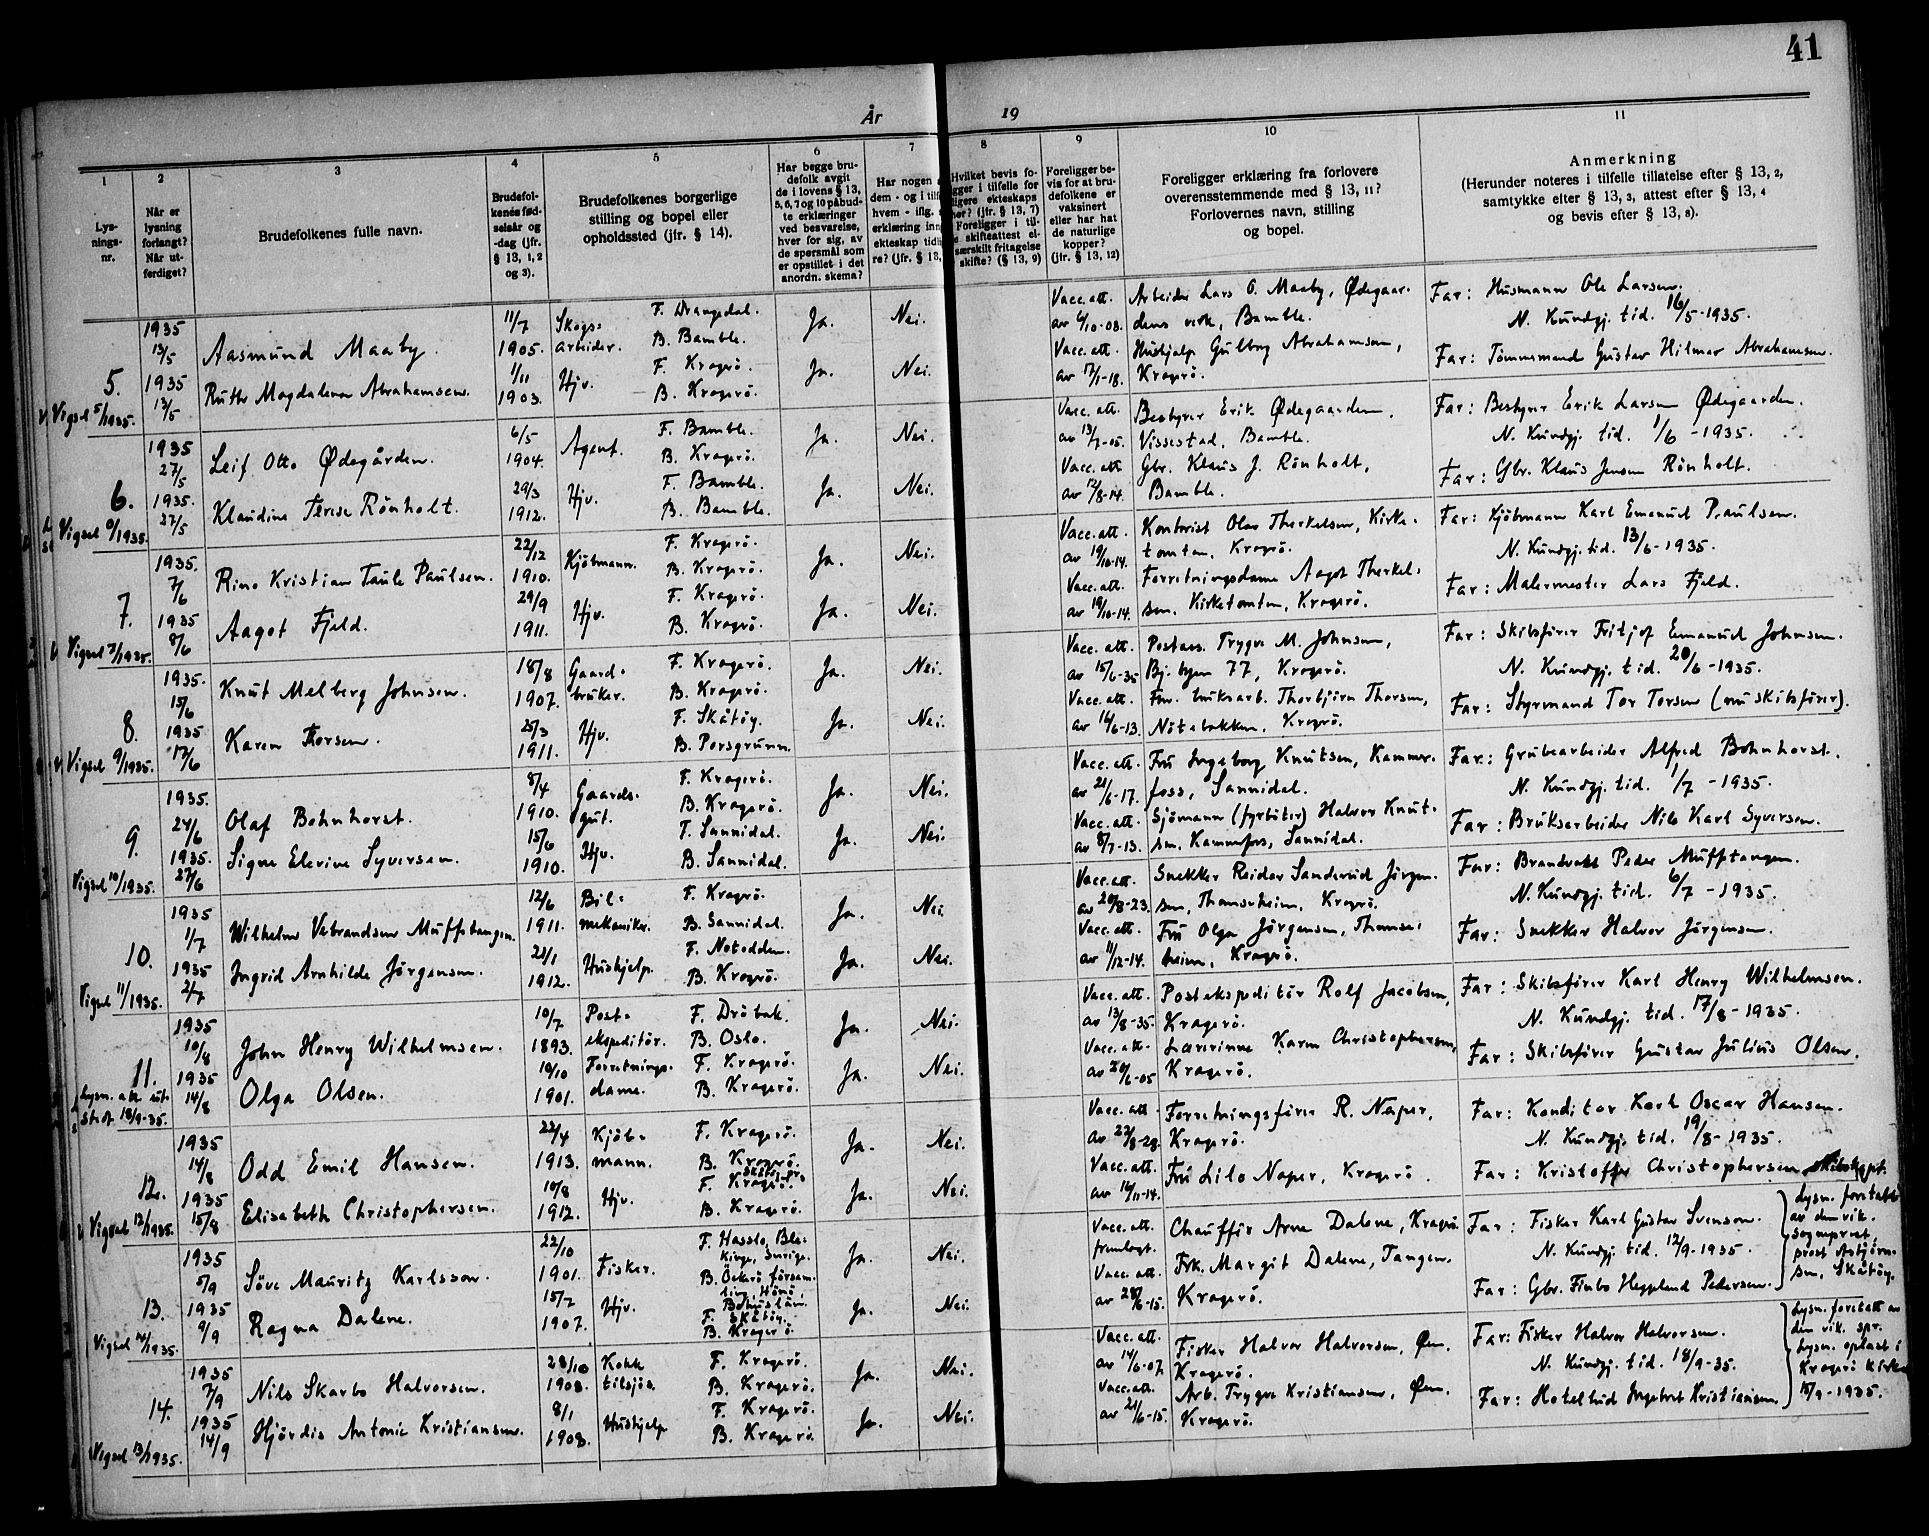 41
År 19
1 2 3 4 5 6 7 8 9 10 11
Lys-
nings-
nr.
Når er
lysning
forlangt?
Når ut-
ferdiget?
Brudefolkenes fulle navn.
Brudefol-
kenes fød-
selsår og
-dag (jfr.
§ 13, 1, 2
og 3).
Brudefolkenes borgerlige
stilling og bopel eller
opholdssted (jfr. § 14).
Har begge bru-
defolk avgit
de i lovens § 13,
5, 6, 7 og 10 påbud-
te erklæringer
ved besvarelse,
hver for sig, av
de spørsmål som
er opstillet i det
anordn. skema?
Har nogen
dem - og i tilf
hvem - iflg.
erklæring inn
ekteskap tidli
re? (jfr. § 13,
Hvilket bevis fo-
gger i tilfelle for
ligere ekteskaps
her? (jfr. § 13, 7)
Foreligger i til-
e skifteattest el-
særskilt fritagelse
skifte? (§ 13, 9)
Foreligger be-
vis for at bru-
defolkene er
vaksinert
eller har hat
de naturlige
kopper?
(jfr. § 13, 12)
Foreligger erklæring fra forlovere
overensstemmende med § 13, 11?
Forlovernes navn, stilling
og bopel.
Anmerkning
(Herunder noteres i tilfelle tillatelse efter § 13, 2,
samtykke efter § 13, 3, attest efter § 13, 4
og bevis efter § 13, 8).
1935 11/7 Skogs- F. Drangedal. Ja. Nei. Vacc. att. Arbeider Lars O. Maaby, Ødegaar- Far: Husmann Ole Larsen.
13/5 Aasmund Maaby. 1905. arbeider. B. Bamble. av 6/10-08. dens verk, Bamble. N. Kundgj. tid. 16/5-1935.
5. 1935 Ruth Magdalena Abrahamsen. 1/11 Hjv. F. Kragerö. Ja. Nei. Vacc. att. Hushjelp Gulborg Abrahamsen, Far: Tömmermand Gustav Hilmar Abrahamsen.
Vigsel 5/1935. 13/5 1903. B. Kragerö. av 17/1-18. Kragerö.
1935 6/5 Agent. F. Bamble. Ja. Nei. Vacc. att. Bestyrer Erik Ødegaarden, Far: Bestyrer Erik Larsen Ødegaarden.
27/5 Leif Otto Ødegården. 1904. B. Kragerö. av 13/7-05. Vissestad, Bamble. N. Kundgj. tid. 1/6-1935.
6. 1935. Klaudine Terese Rönholt. 29/3 Hjv. F. Bamble. Ja. Nei. Vacc. att. Gbr. Klaus J. Rönholt, Far: Gbr. Klaus Jensen Rönholt.
Vigsel 6/1935. 27/5 1912. B. Bamble. av 12/8-14. Bamble.
1935. 22/12 Kjöbmann. F. Kragerö. Ja. Nei. Vacc. att. Kontorist Olav Therkelsen, Kirke- Far: Kjöbmann Karl Emanuel Paulsen.
7/6 Rino Kristian Taule Paulsen. 1910. B. Kragerö. av 19/10-14. tomten, Kragerö. N. Kundgj. tid. 13/6-1935.
7. 1935 Aagot Fjeld. 29/9 Hjv. F. Kragerö. Ja. Nei. Vacc. att. Forretningsdame Aagot Therkel- Far: Malermester Lars Fjeld.
Vigsel 7/1935. 8/6 1911. B. Kragerö. av 19/10-14. sen, Kirketomten, Kragerö.
1935. 18/8 Gaard- F. Kragerö. Ja. Nei. Vacc. att. Postass. Trygve M. Johnsen, Far: Skibsfører Fritjof Emanuel Johnsen.
15/6 Knut Melberg Johnsen. 1907. bruker. B. Kragerö. av 15/6-35 Bj. byen 77, Kragerö. N. Kundgj. tid. 20/6-1935.
8. 1935 Karen Thorsen. 25/3 Hjv. F. Skåtöy. Ja. Nei. Vacc. att. Fhv. bruksarb. Thorbjörn Thorsen, Far: Styrmand Tor Torsen (nu skibsfører).
Vigsel 9/1935. 17/6 1911. B. Porsgrunn. av 14/6-13. Nötebakken, Kragerö.
1935. 8/4 Gaards- F. Kragerö. Ja. Nei. Vacc. att. Fru Ingeborg Knutsen, Kammer- Far: Grubearbeider Alfred Bohnhorst.
24/6 Olaf Bohnhorst. 1910. gut. B. Kragerö. av 21/6-17. foss, Sannidal. N. Kundgj. tid. 1/7-1935.
9. 1935. Signe Elevine Syversen. 15/6 Hjv. F. Sannidal. Ja. Nei. Vacc. att. Sjömann (fyrböter) Halvor Knut- Far: Bruksarbeider Nils Karl Syversen.
Vigsel 10/1935. 27/6 1910. B. Sannidal. av 8/7-13. sen, Kammerfoss, Sannidal.
1935 12/6 Bil- F. Kragerö. Ja. Nei. Vacc. att. Snekker Reidar Sanderud Jörgen- Far: Peder Mufftangen.
1/7 Wilhelm Mufftangen. 1911. mekaniker. B. Sannidal. av 20/8-23. sen, Thomesheim, Kragerö. N. Kundgj. tid. 6/7-1935.
10. 1935 Ingrid Arnhilde Jörgensen. 21/1 Hushjelp. F. Notodden. Ja. Nei. Vacc. att. Fru Olga Jörgensen, Thomes- Far: Snekker Halvor Jörgensen.
Vigsel 11/1935. 2/7 1912. B. Kragerö. av 11/12-14. heim, Kragerö.
1935 10/7 Post- F. Dröbak. Ja. Nei. Vacc. att. Postekspeditör Rolf Jacobsen, Far: Skibsfører Karl Henry Wilhelmsen.
10/8 John Henry Wilhelmsen. 1893. ekspeditör. B. Oslo. av 13/8-35. Kragerö. N. Kundgj. tid. 17/8-1935.
11. 1935 Olga Olsen. 10/10 Forretnings- F. Kragerö. Ja. Nei. Vacc. att. Lærerinne Karen Christophersen, Far: Skibsfører Gustav Julius Olsen.
Lysn. att. ut- 14/8 1901. dame. B. Kragerö. av 20/6-05 Kragerö.
stedt 18/9-35.
1935 22/4 Kjöb- F. Kragerö. Ja. Nei. Vacc. att. Forretningsfører R. Naper, Far: Konditor Karl Oscar Hansen.
14/8 Odd Emil Hansen. 1913. mann. B. Kragerö. av 22/8-28. Kragerö. N. Kundgj. tid. 19/8-1935.
12. 1935 Elisabeth Christophersen. 10/8 Hjv. F. Kragerö. Ja. Nei. Vacc. att. Fru Lilo Naper, Kragerö. Far: Kristoffer Christophersen, skibskapt.
Vigsel 12/1935. 15/8 1912. B. Kragerö. av 16/11-14.
1935 22/10 Fisker. F. Hasslo, Ble- Ja. Nei. Vacc. att. Chaufför Arne Dalene, Kragerö. Far: Fisker Karl Gustav Svenson. Lysn. foretatt
5/9 Söve Mauritz Karlsson. 1901. kinge, Sverige. fremlagt. N. Kundgj. tid. 12/9-1935. av den vik.
B. Öckerö försam- sogneprest,
13. 1935 Ragna Dalene. 15/7 Hjv. ling, Hönö, Ja. Nei. Vacc. att. Frk. Margit Dalene, Tangen, Far: Gbr. Finbo Heggelund Pedersen. prost Asbjörn-
Vigsel 14/1935. 9/9 1907. Bohuslän. av 28/6-15. Kragerö. sen, Skåtöy.
F. Skåtöy.
B. Kragerö.
1935 28/10 Kokk F. Kragerö. Ja. Nei. Vacc. att. Fisker Halvor Halvorsen, Øen, Far: Fisker Halvor Halvorsen. Lysn. foretatt av
7/9 Nils Skarbo Halvorsen. 1908. tilsjös. B. Kragerö. av 14/6-07. Kragerö. N. Kundgj. tid. 18/9-35. den vik. spr.
14. 1935 Hjördis Antonie Kristiansen. 8/1 Hushjelp F. Kragerö. Ja. Nei. Vacc. att. Arb. Trygve Kristiansen, Øen, Far: Hotelbud Ingebret Kristiansen. Lysn. oplest i
Vigsel 13/1935. 14/9 1908. B. Kragerö. av 21/6-15. Kragerö. Kragerö kirke
15/9-1935.